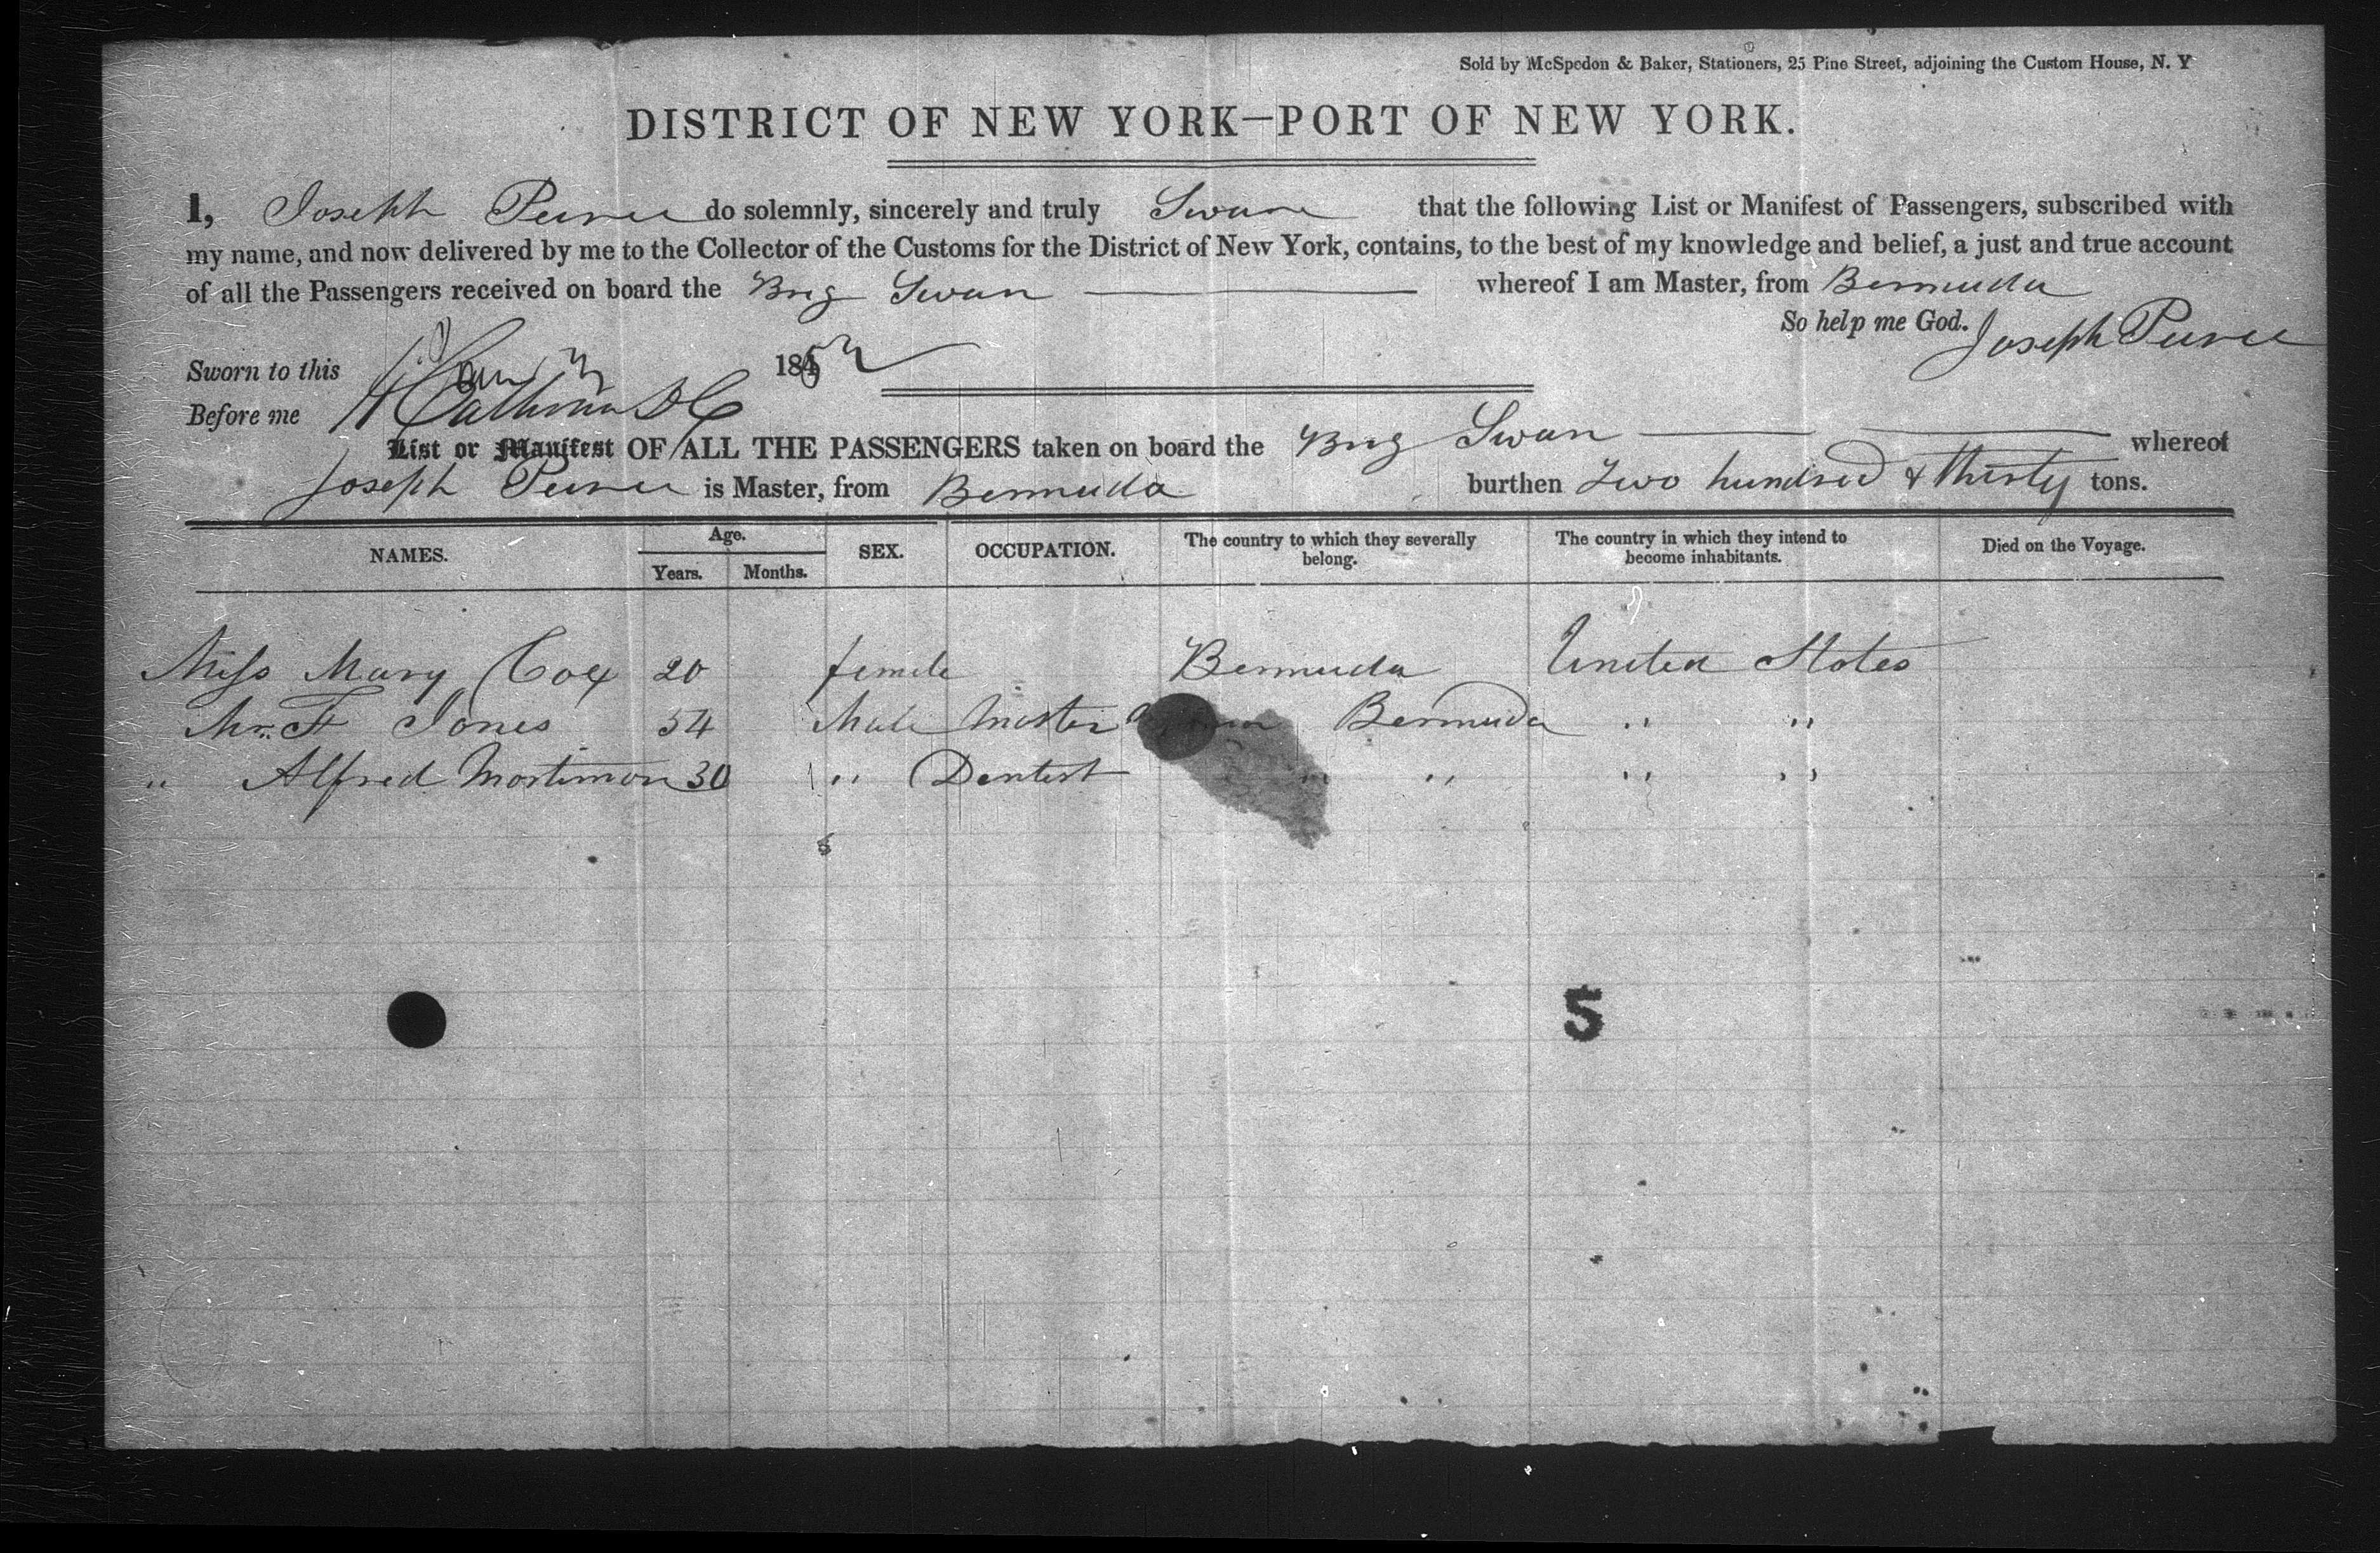 Sold by McSpedon & Baker, Stationers, 25 Pine Street, adjoining the Custom House, N. Y
DISTRICT OF NEW YORK—PORT OF NEW YORK.
I, Joseph do solemnly, sincerely and truly Swan that the following List or Manifest of Passengers, subscribed with
my name, and now delivered by me to the Collector of the Customs for the District of New York, contains, to the best of my knowledge and belief, a just and true account
of all the Passengers received on board the Brig Swan whereof I am Master, from Bermuda
So help me God. Joseph
Sworn to this 185
Before me
List or Manifest OF ALL THE PASSENGERS taken on board the Brig Swan whereof
Joseph is Master, from Bermuda burthen Two hundred & thirty tons.
NAMES. Age. Years. Months. SEX. OCCUPATION. The country to which they severally belong. The country in which they intend to become inhabitants. Died on the Voyage.
Miss Mary Cox 20 female Bermuda United States
Mr. F Jones 54 Male Master Bermuda " "
" Alfred Mortimor 30 " Dentist " " " "
5